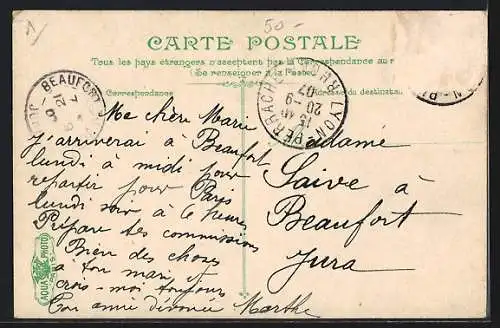 50-
CARTE POSTALE
Tous les pays étrangers n'acceptent pas la Correspondance au r
(Se renseigner à la Poste)
Correspondance
Adresse du destinataire
BEAUFORT
JURA
LYON-PERRACHE
RHONE
20-9
07
Ma chère Marie
J'arriverai à Beaufort
lundi à midi pour
repartir pour Paris
lundi soir à 6 heures
Prépare tes commissions
Bien des choses
à ton mari
crois-moi toujours
Ton amie dévouée Marthe
Madame
Saive à
Beaufort
Jura
AQUA PHOTO